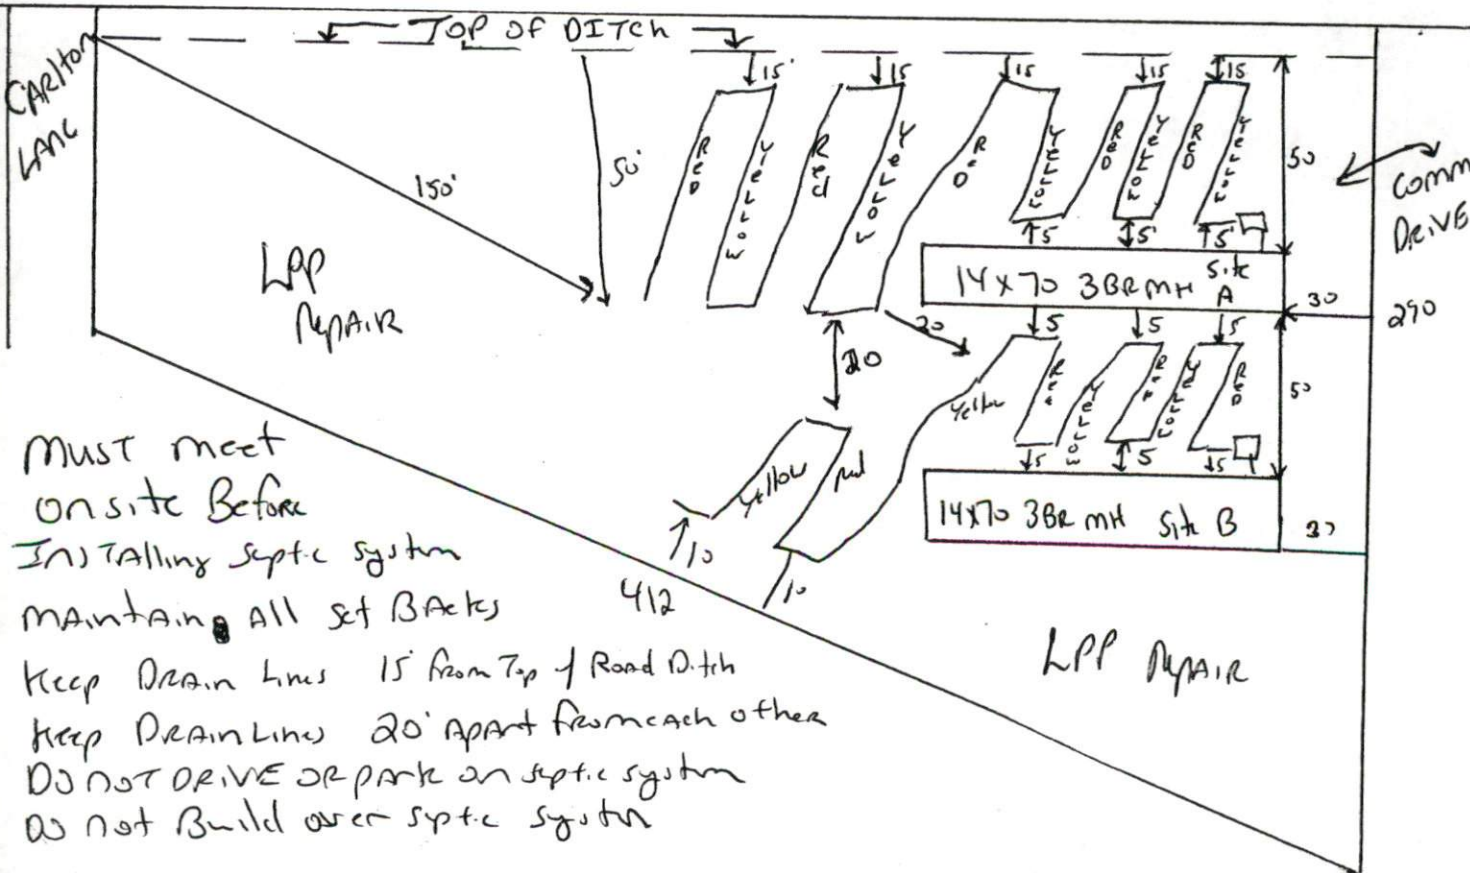 TOP OF DITCH
CARlton
LANE
15'
15
15
15
15
Red
Yellow
Red
Yellow
RED
Yellow
RED
Yellow
RED
Yellow
50'
50
150'
COMM
DRIVE
5
5'
5'
LPP
REPAIR
14X70 3BR MH Site
A
30
290
20
5
5
5
20
Yellow
Red
Yellow
Red
Yellow
RED
50
5
5
5
Yellow
Red
14X70 3BR MH Site B
30
10
10
412
LPP REPAIR
Must meet
onsite Before
INSTAlling septic system
MAintain All set BAcks
Keep DRAin Lines 15' from Top of Road Ditch
Keep DRAinLines 20' Apart from each other
DO NOT DRIVE OR pARk on septic system
DO not Build over septic system